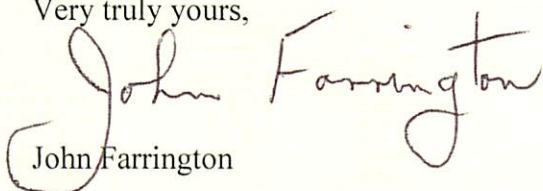 Very truly yours,
John Farrington
John Farrington